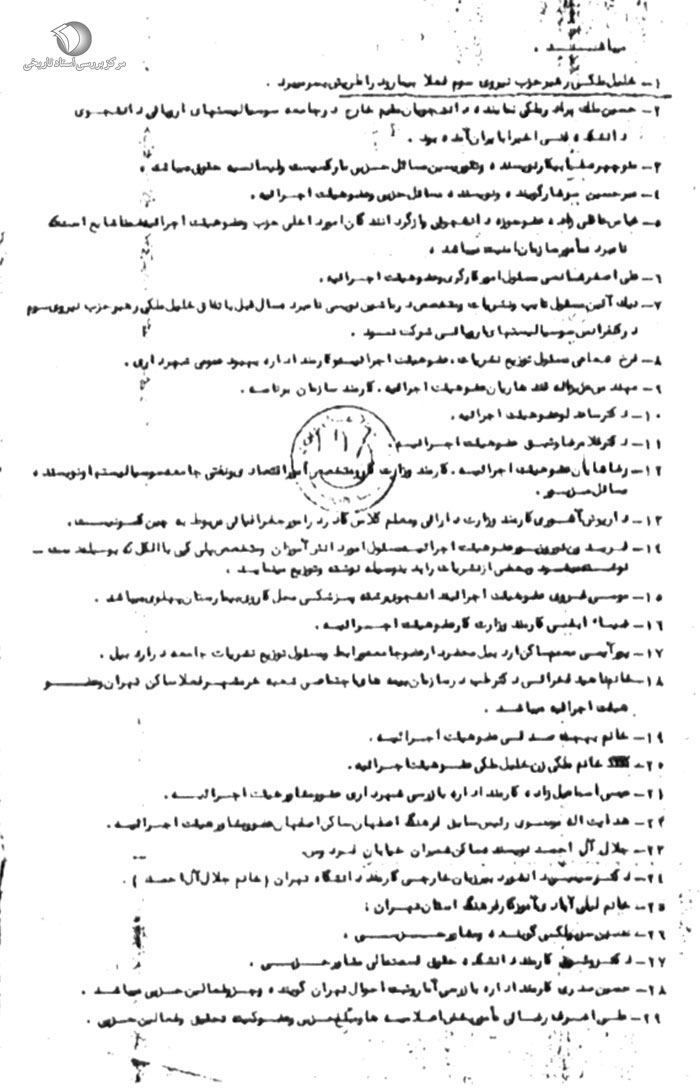 مرکز بررسی اسناد تاریخی
میباشند .
۱- خلیل ملکی رهبر حزب نیروی سوم فعلا بیمار و در اطریش بسر میبرد .
۲- حسین ملک برادر ملکی نماینده دانشجویان مقیم خارج در جامعه سوسیالیستهای اروپائی دانشجوی
دانشکده فنی اخیرا بایران آمده بود .
۳- منوچهر صفا بیکار نویسنده و تئوریسین مسائل حزبی مارکسیست و لیسانسیه حقوق میباشد .
۴- میرحسین سرشار گوینده و نویسنده مسائل حزبی و عضو هیئت اجرائیه .
۵- عباس عاقلی زاده عضو حوزه دانشجوئی و از گردانندگان امور داخلی حزب و عضو هیئت اجرائیه ضمنا شایع است که
نامبرد مأمور سازمان امنیت میباشد .
۶- علی اصغر مسئول امور کارگری و عضو هیئت اجرائیه .
۷- نیک آئین مسئول تایپ و نشریات و متخصص در ماشین نویسی نامبرد سال قبل باتفاق خلیل ملکی رهبر حزب نیروی سوم
در کنفرانس سوسیالیستهای اروپائی شرکت نمود .
۸- فرخ مسئول توزیع نشریات ، عضو هیئت اجرائیه و کارمند اداره بهبود عمومی شهرداری .
۹- مهندس قندهاریان عضو هیئت اجرائیه ، کارمند سازمان برنامه .
۱۰- دکتر ساعدلو عضو هیئت اجرائیه .
۱۱- دکتر غلامرضا وثیق عضو هیئت اجرائیه .
۱۲- رضا شایان عضو هیئت اجرائیه ، کارمند وزارت کار و متخصص امور اقتصادی و نفتی جامعه سوسیالیستها و نویسنده
مسائل حزبی .
۱۳- داریوش آشوری کارمند وزارت دارائی و معلم کلاس کادر در امور جغرافیائی مربوط به چین کمونیست .
۱۴- فریدون عضو هیئت اجرائیه مسئول امور دانش آموزان و متخصص پلی کپی با الکل که بوسیله دست -
نوشته میشود و بعضی از نشریات را بدینوسیله نوشته و توزیع مینماید .
۱۵- موسی فروی عضو هیئت اجرائیه دانشجوی رشته پزشکی محل کار وی بیمارستان پهلوی میباشد .
۱۶- ضیاء کارمند وزارت کار عضو هیئت اجرائیه .
۱۷- ساکن اردبیل عضو جامعه رابط و مسئول توزیع نشریات جامعه در اردبیل .
۱۸- خانم ناهید دکتر طب در سازمان بیمه های اجتماعی شعبه خرمشهر فعلا ساکن تهران و عضو
هیئت اجرائیه میباشد .
۱۹- خانم بهیجه صدقی عضو هیئت اجرائیه .
۲۰- خانم ملکی زن خلیل ملکی عضو هیئت اجرائیه .
۲۱- عیسی اسماعیل زاده کارمند اداره بازرسی شهرداری عضو مشاور هیئت اجرائیه .
۲۲- هدایت اله موسوی رئیس سابق فرهنگ اصفهان ساکن اصفهان عضو مشاور هیئت اجرائیه .
۲۳- جلال آل احمد نویسنده ساکن شمیران خیابان فردوس
۲۴- دکتر سیمین دانشور دبیر زبان خارجی کارمند دانشگاه تهران ( خانم جلال آل احمد ) .
۲۵- خانم لیلی آبادی آموزگار فرهنگ استان تهران .
۲۶- حسین گوینده و مشاور حزبی .
۲۷- دکتر وثوق کارمند دانشکده حقوق قسمت مالی مشاور حزبی .
۲۸- حسین صدری کارمند اداره بازرسی آمار و ثبت احوال تهران گوینده و جزو فعالین حزبی میباشد .
۲۹- علی اشرف رضائی و مبلغ حزبی و عضو کمیته تحقیق و فعالین حزبی .